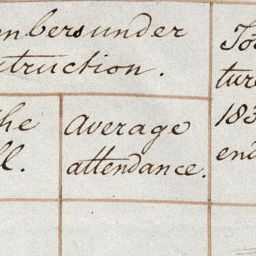 mbers under
struction.
the
ll.
average
attendance.
To
ture
183
end